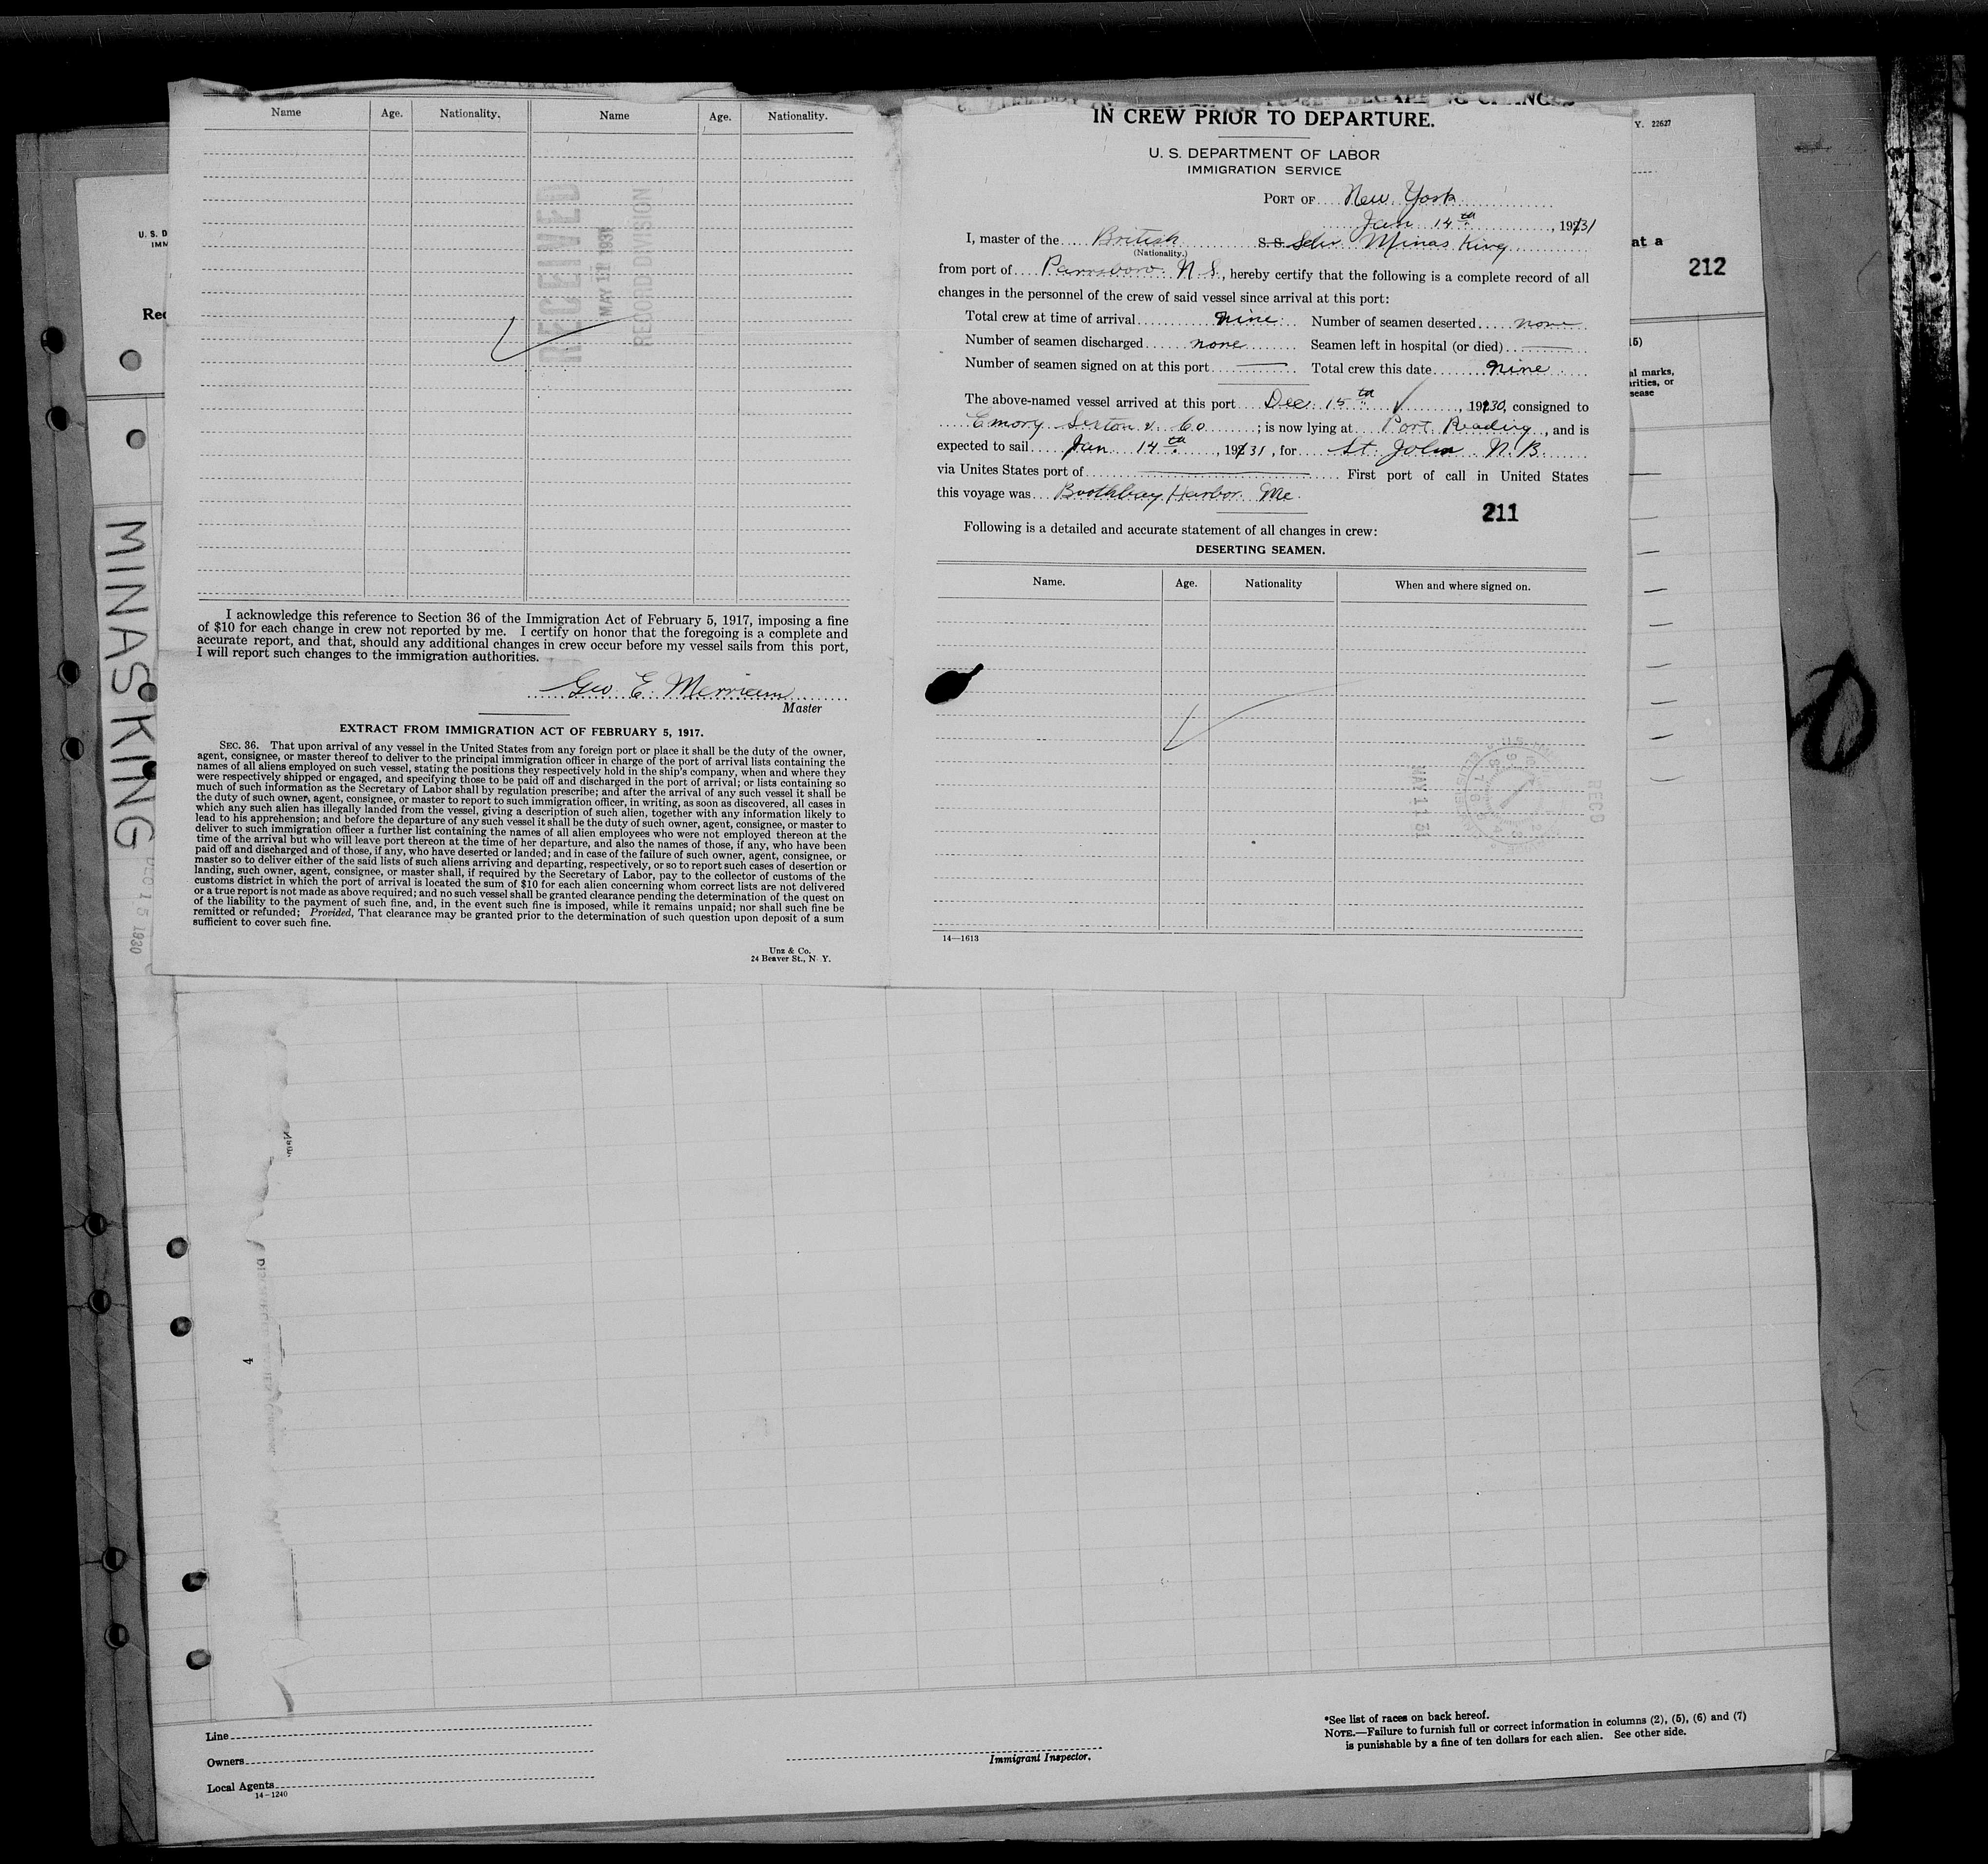 Name Age. Nationality. Name Age. Nationality.
RECEIVED
RECORD DIVISION
I acknowledge this reference to Section 36 of the Immigration Act of February 5, 1917, imposing a fine
of $10 for each change in crew not reported by me. I certify on honor that the foregoing is a complete and
accurate report, and that, should any additional changes in crew occur before my vessel sails from this port,
I will report such changes to the immigration authorities.
Geo E. Merriam
Master
EXTRACT FROM IMMIGRATION ACT OF FEBRUARY 5, 1917.
SEC. 36. That upon arrival of any vessel in the United States from any foreign port or place it shall be the duty of the owner,
agent, consignee, or master thereof to deliver to the principal immigration officer in charge of the port of arrival lists containing the
names of all aliens employed on such vessel, stating the positions they respectively hold in the ship's company, when and where they
were respectively shipped or engaged, and specifying those to be paid off and discharged in the port of arrival; or lists containing so
much of such information as the Secretary of Labor shall by regulation prescribe; and after the arrival of any such vessel it shall be
the duty of such owner, agent, consignee, or master to report to such immigration officer, in writing, as soon as discovered, all cases in
which any such alien has illegally landed from the vessel, giving a description of such alien, together with any information likely to
lead to his apprehension; and before the departure of any such vessel it shall be the duty of such owner, agent, consignee, or master to
deliver to such immigration officer a further list containing the names of all alien employees who were not employed thereon at the
time of the arrival but who will leave port thereon at the time of her departure, and also the names of those, if any, who have been
paid off and discharged and of those, if any, who have deserted or landed; and in case of the failure of such owner, agent, consignee, or
master so to deliver either of the said lists of such aliens arriving and departing, respectively, or so to report such cases of desertion or
landing, such owner, agent, consignee, or master shall, if required by the Secretary of Labor, pay to the collector of customs of the
customs district in which the port of arrival is located the sum of $10 for each alien concerning whom correct lists are not delivered
or a true report is not made as above required; and no such vessel shall be granted clearance pending the determination of the quest on
of the liability to the payment of such fine, and, in the event such fine is imposed, while it remains unpaid; nor shall such fine be
remitted or refunded; Provided, That clearance may be granted prior to the determination of such question upon deposit of a sum
sufficient to cover such fine.
Unz & Co.
24 Beaver St., N. Y.
IN CREW PRIOR TO DEPARTURE.
U. S. DEPARTMENT OF LABOR
IMMIGRATION SERVICE
PORT OF New York
Jan 14th, 1931
I, master of the British S. S. Schr Minas King
(Nationality.)
from port of Parrsboro N S, hereby certify that the following is a complete record of all
changes in the personnel of the crew of said vessel since arrival at this port:
Total crew at time of arrival nine Number of seamen deserted none
Number of seamen discharged none Seamen left in hospital (or died)
Number of seamen signed on at this port Total crew this date nine
The above-named vessel arrived at this port Dec 15th, 1930, consigned to
Emory Sexton & Co; is now lying at Port Reading, and is
expected to sail Jan 14th, 1931, for St. John N. B.
via Unites States port of First port of call in United States
this voyage was Boothbay Harbor Me.
211
Following is a detailed and accurate statement of all changes in crew:
DESERTING SEAMEN.
Name. Age. Nationality When and where signed on.
MAY 11 31
RECD
14—1613
Y. 22627
at a
212
al marks,
arities, or
sease
U. S. D
IMM
Rec
MINAS KING
DEC 15 1930
4
Line
Owners
Local Agents
14-1240
Immigrant Inspector.
*See list of races on back hereof.
NOTE.—Failure to furnish full or correct information in columns (2), (5), (6) and (7)
is punishable by a fine of ten dollars for each alien. See other side.